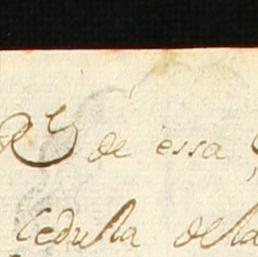 Rl de essa
Cedulla della